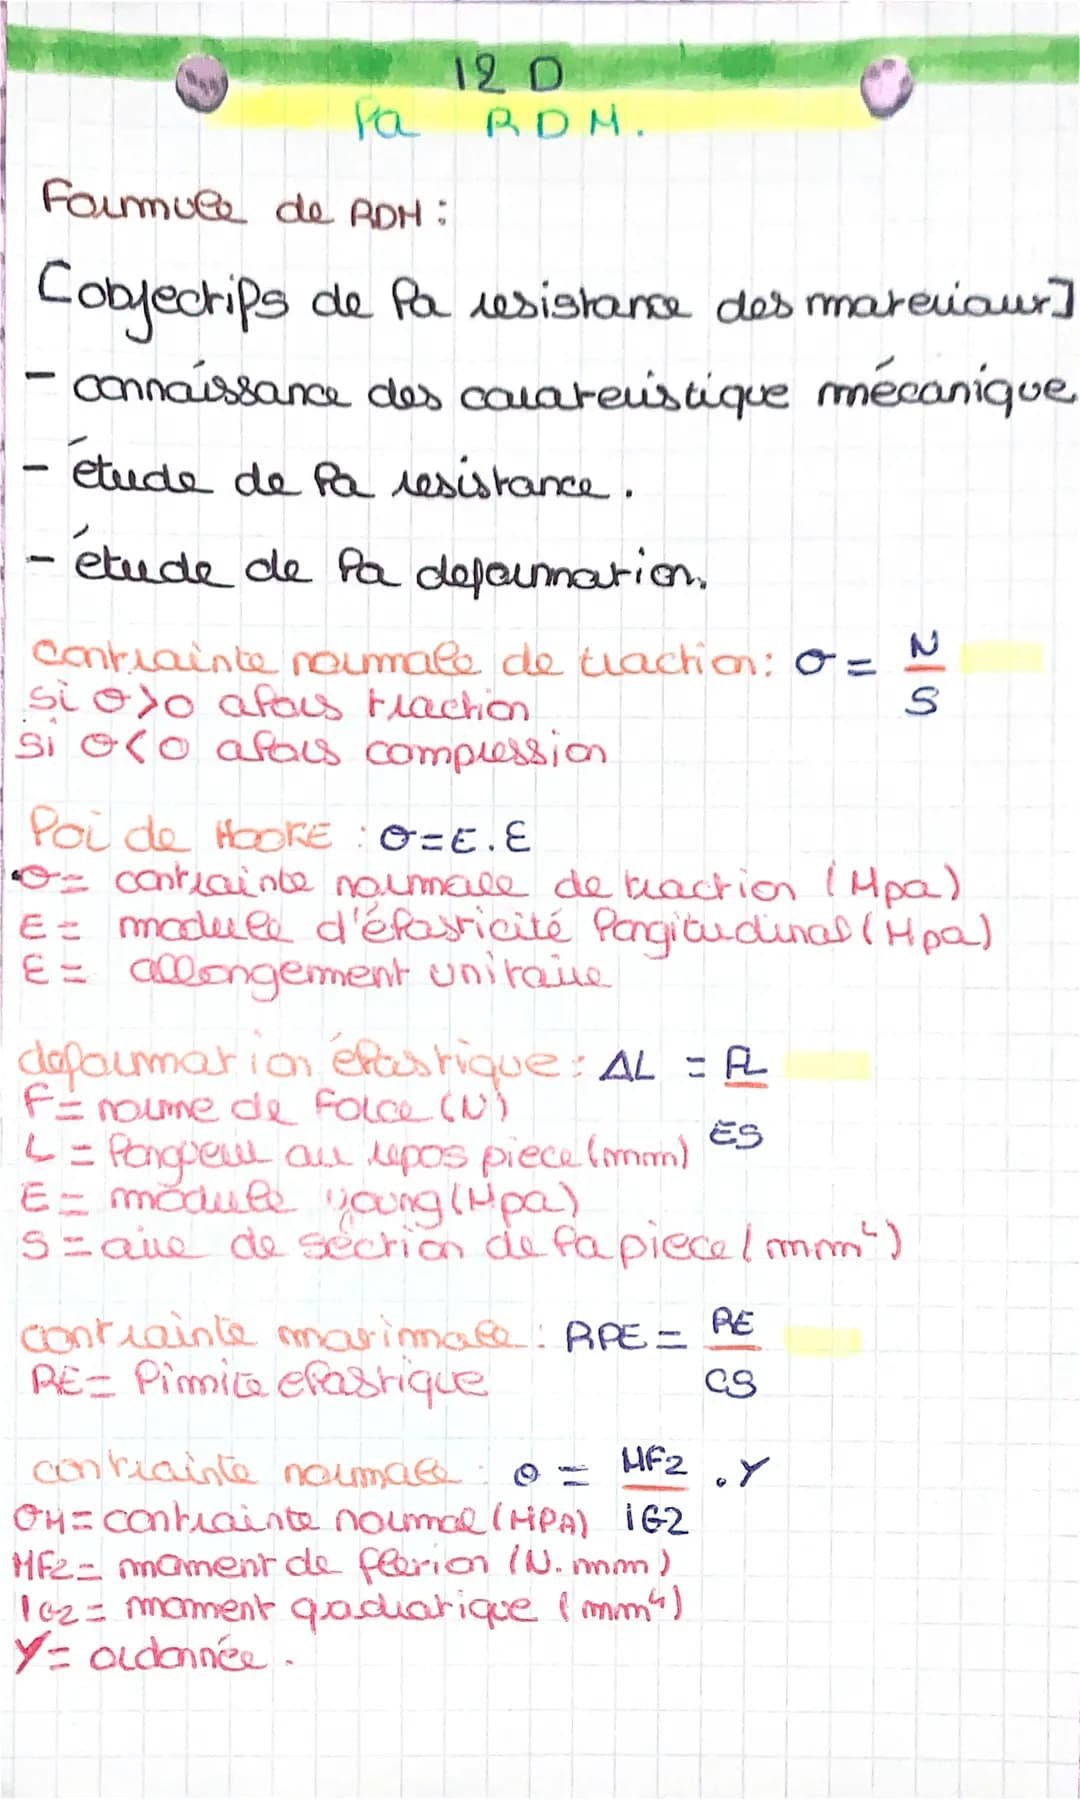 I2D
la RDM.
Formule de RDM :
[objectifs de la resistance des materiaux]
- connaissance des carateristique mécanique
- étude de la resistance.
- étude de la deformation.
contrainte normale de traction : σ = N/S
si σ>0 alors traction
si σ<0 alors compression
loi de HOOKE : σ=E.Ɛ
σ= contrainte normale de traction (Mpa)
E= module d'élasticité longitudinal (Mpa)
Ɛ= allongement unitaire
deformation élastique : ΔL = FL/ES
F= norme de force (N)
L = longueur au repos piece (mm)
E= module young (Mpa)
S = aire de séction de la piece (mm²)
contrainte maximale : RPE = RE/CS
RE= limite elastique
contrainte normale : σ = MFZ/IGZ . Y
σM= contrainte normal (MPA)
MFZ= moment de flexion (N.mm)
IGZ= moment quadratique (mm⁴)
Y= ordonnée.